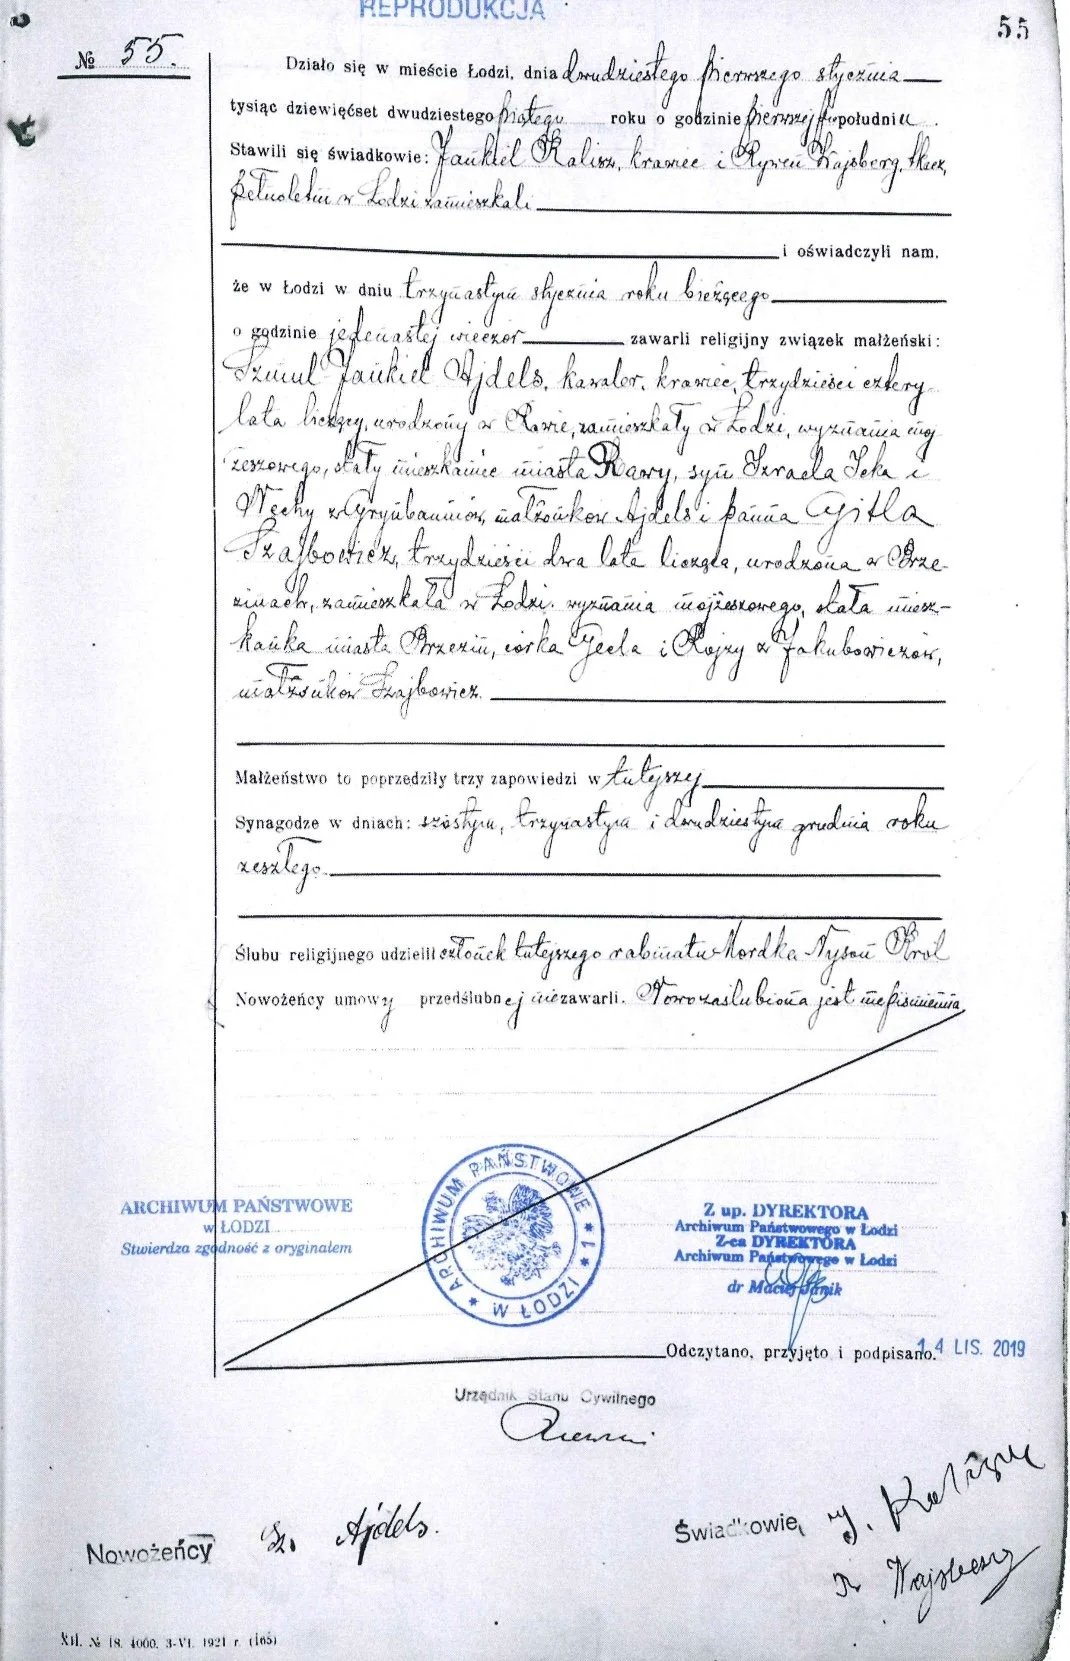 REPRODUKCJA
55
№ 55.
Działo się w mieście Łodzi, dnia dwudziestego pierwszego stycznia
tysiąc dziewięćset dwudziestego piątego roku o godzinie pierwszej popołudniu.
Stawili się świadkowie: Jankiel Kalisz, krawiec i Rywen Wajsberg, tkacz,
pełnoletni w Łodzi zamieszkali
i oświadczyli nam,
że w Łodzi w dniu trzynastym stycznia roku bieżącego
o godzinie jedenastej wieczór zawarli religijny związek małżeński:
Szmul Jankiel Ajdels, kawaler, krawiec, trzydzieści cztery
lata liczący, urodzony w Rawie, zamieszkały w Łodzi, wyznania moj
żeszowego, stały mieszkaniec miasta Rawy, syn Izraela Icka i
Nechy z Grynbaumów, małżonków Ajdels i panna Gitla
Szajbowicz, trzydzieści dwa lata licząca, urodzona w Brze-
zinach, zamieszkała w Łodzi, wyznania mojżeszowego, stała miesz-
kanka miasta Brzezin, córka Gecla i Rojzy z Jakubowiczów,
małżonków Szajbowicz.
Małżeństwo to poprzedziły trzy zapowiedzi w tutejszej
Synagodze w dniach: szóstym, trzynastym i dwudziestym grudnia roku
zeszłego.
Ślubu religijnego udzielił członek tutejszego rabinatu Mordka Nyson Król
Nowożeńcy umowy przedślubnej niezawarli. Nowozaślubiona jest niepiśmienna
ARCHIWUM PAŃSTWOWE
w ŁODZI
Stwierdza zgodność z oryginałem
ARCHIWUM PAŃSTWOWE * 1 * W ŁODZI *
Z up. DYREKTORA
Archiwum Państwowego w Łodzi
Z-ca DYREKTORA
Archiwum Państwowego w Łodzi
dr Maciej Janik
Odczytano, przyjęto i podpisano.
14 LIS. 2019
Urzędnik Stanu Cywilnego
Nowożeńcy Sz. Ajdels.
Świadkowie, J. Kalisz
R Wajsberg
XII. № 18. 4000. 3-VI. 1921 r. (165)